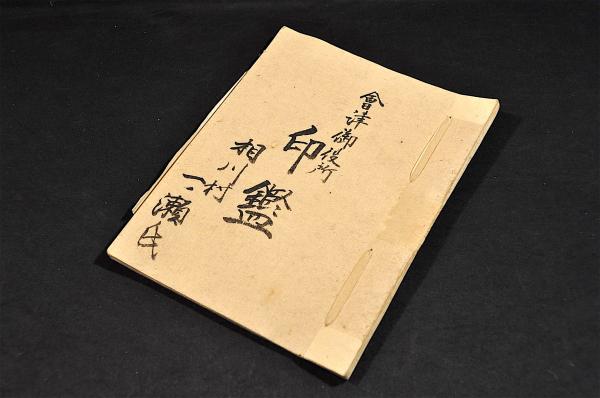 會津御役所
印鑑
相川村
一ノ瀬氏